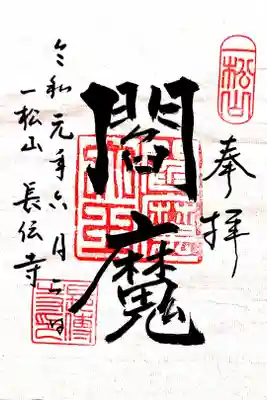 奉拝
一松山
閻魔
令和元年六月二日
一松山 長伝寺